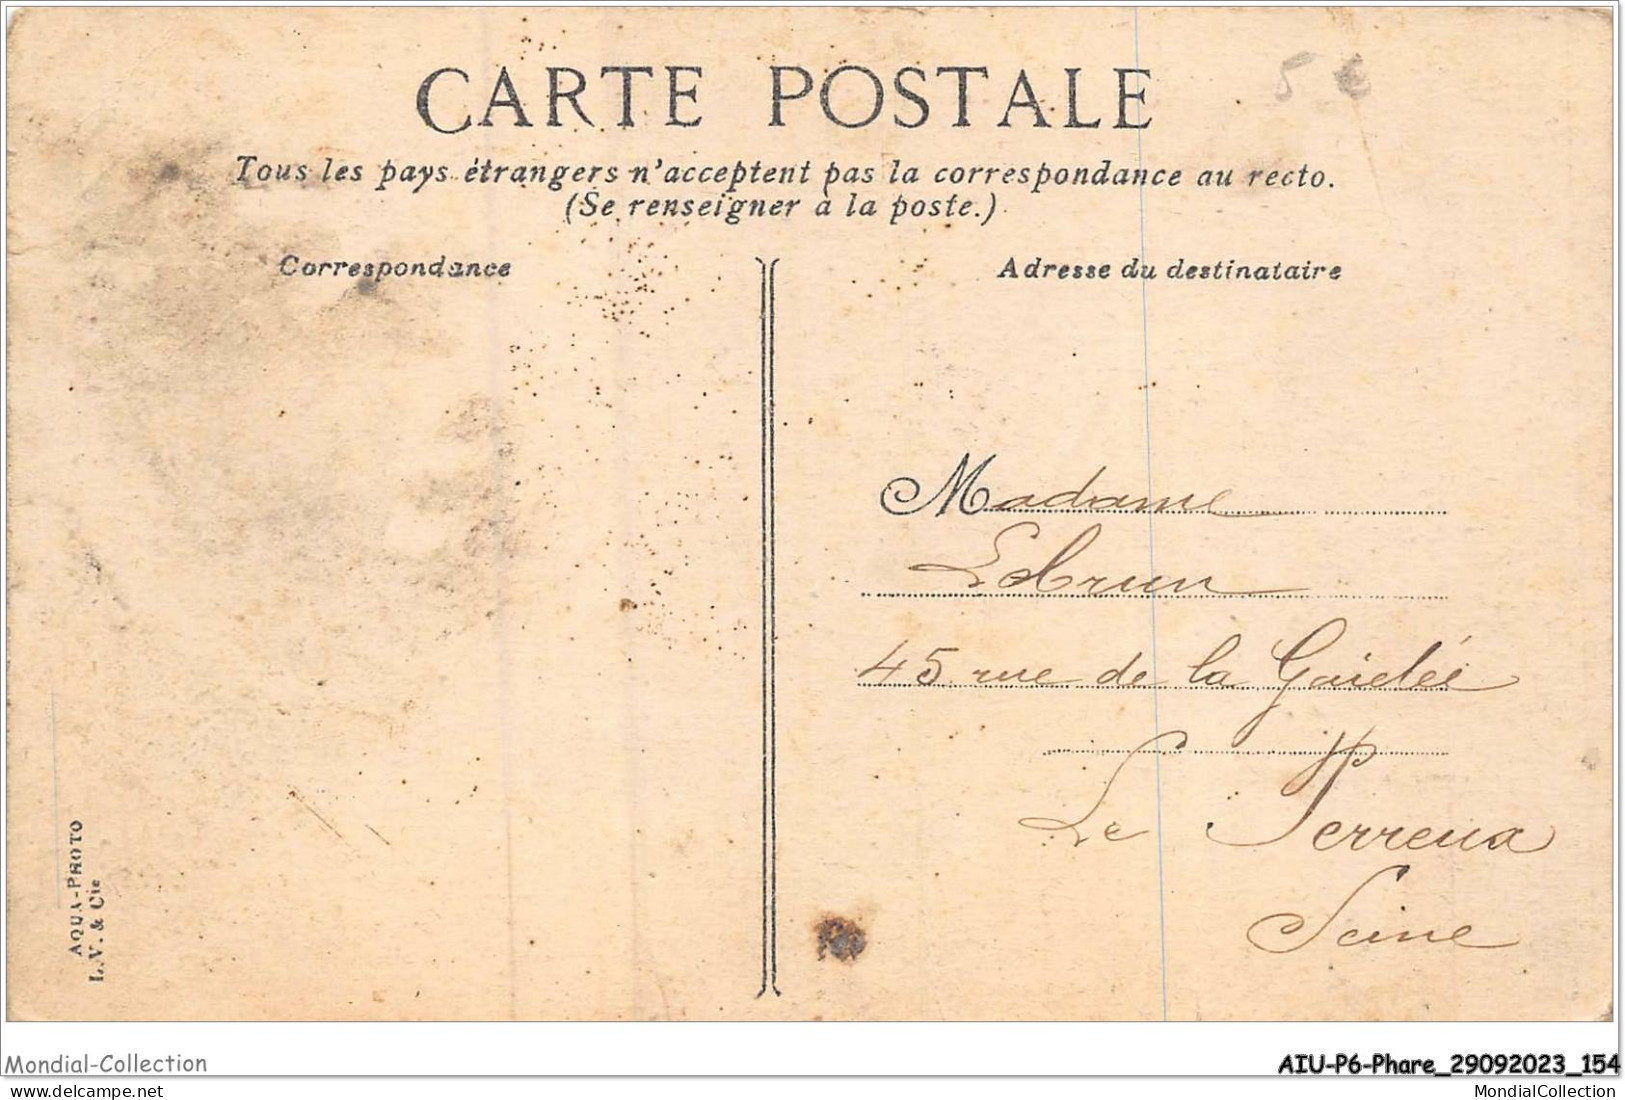 CARTE POSTALE
5 €
Tous les pays étrangers n'acceptent pas la correspondance au recto.
(Se renseigner à la poste.)
Correspondance
Adresse du destinataire
Madame
Lebrun
45 rue de la Gaieté
Le Perreux
Seine
AQUA-PHOTO
L.V. & Cie
Mondial-Collection
AIU-P6-Phare_29092023_154
delcampe.net
MondialCollection